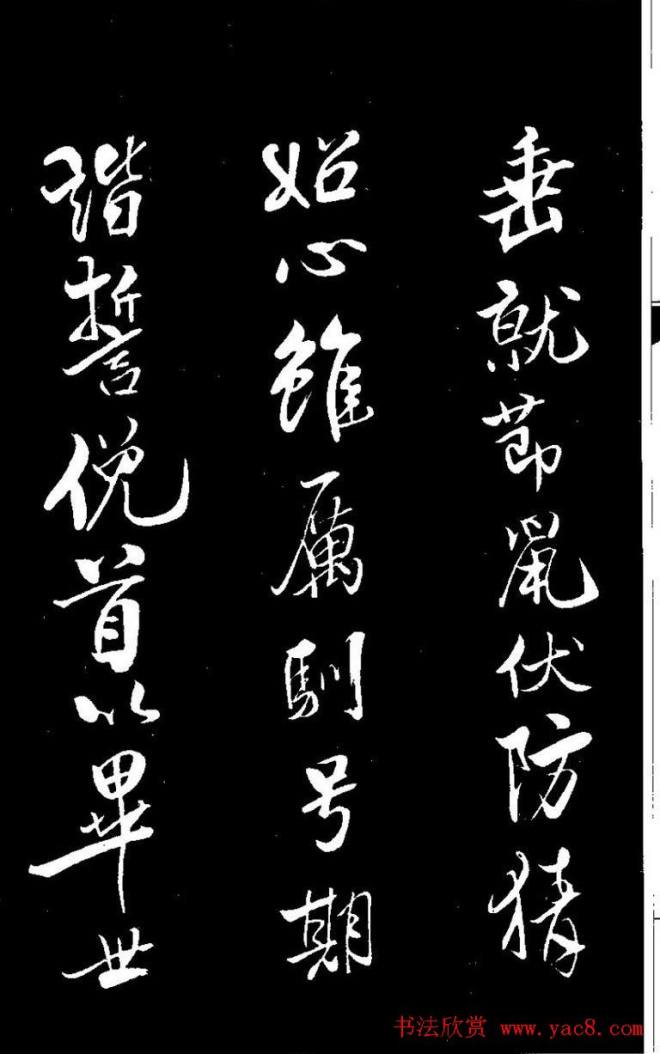 垂就節鼠伏防猜
心雖厲馴号期
誓俛首以畢世
书法欣赏 www.yac8.com